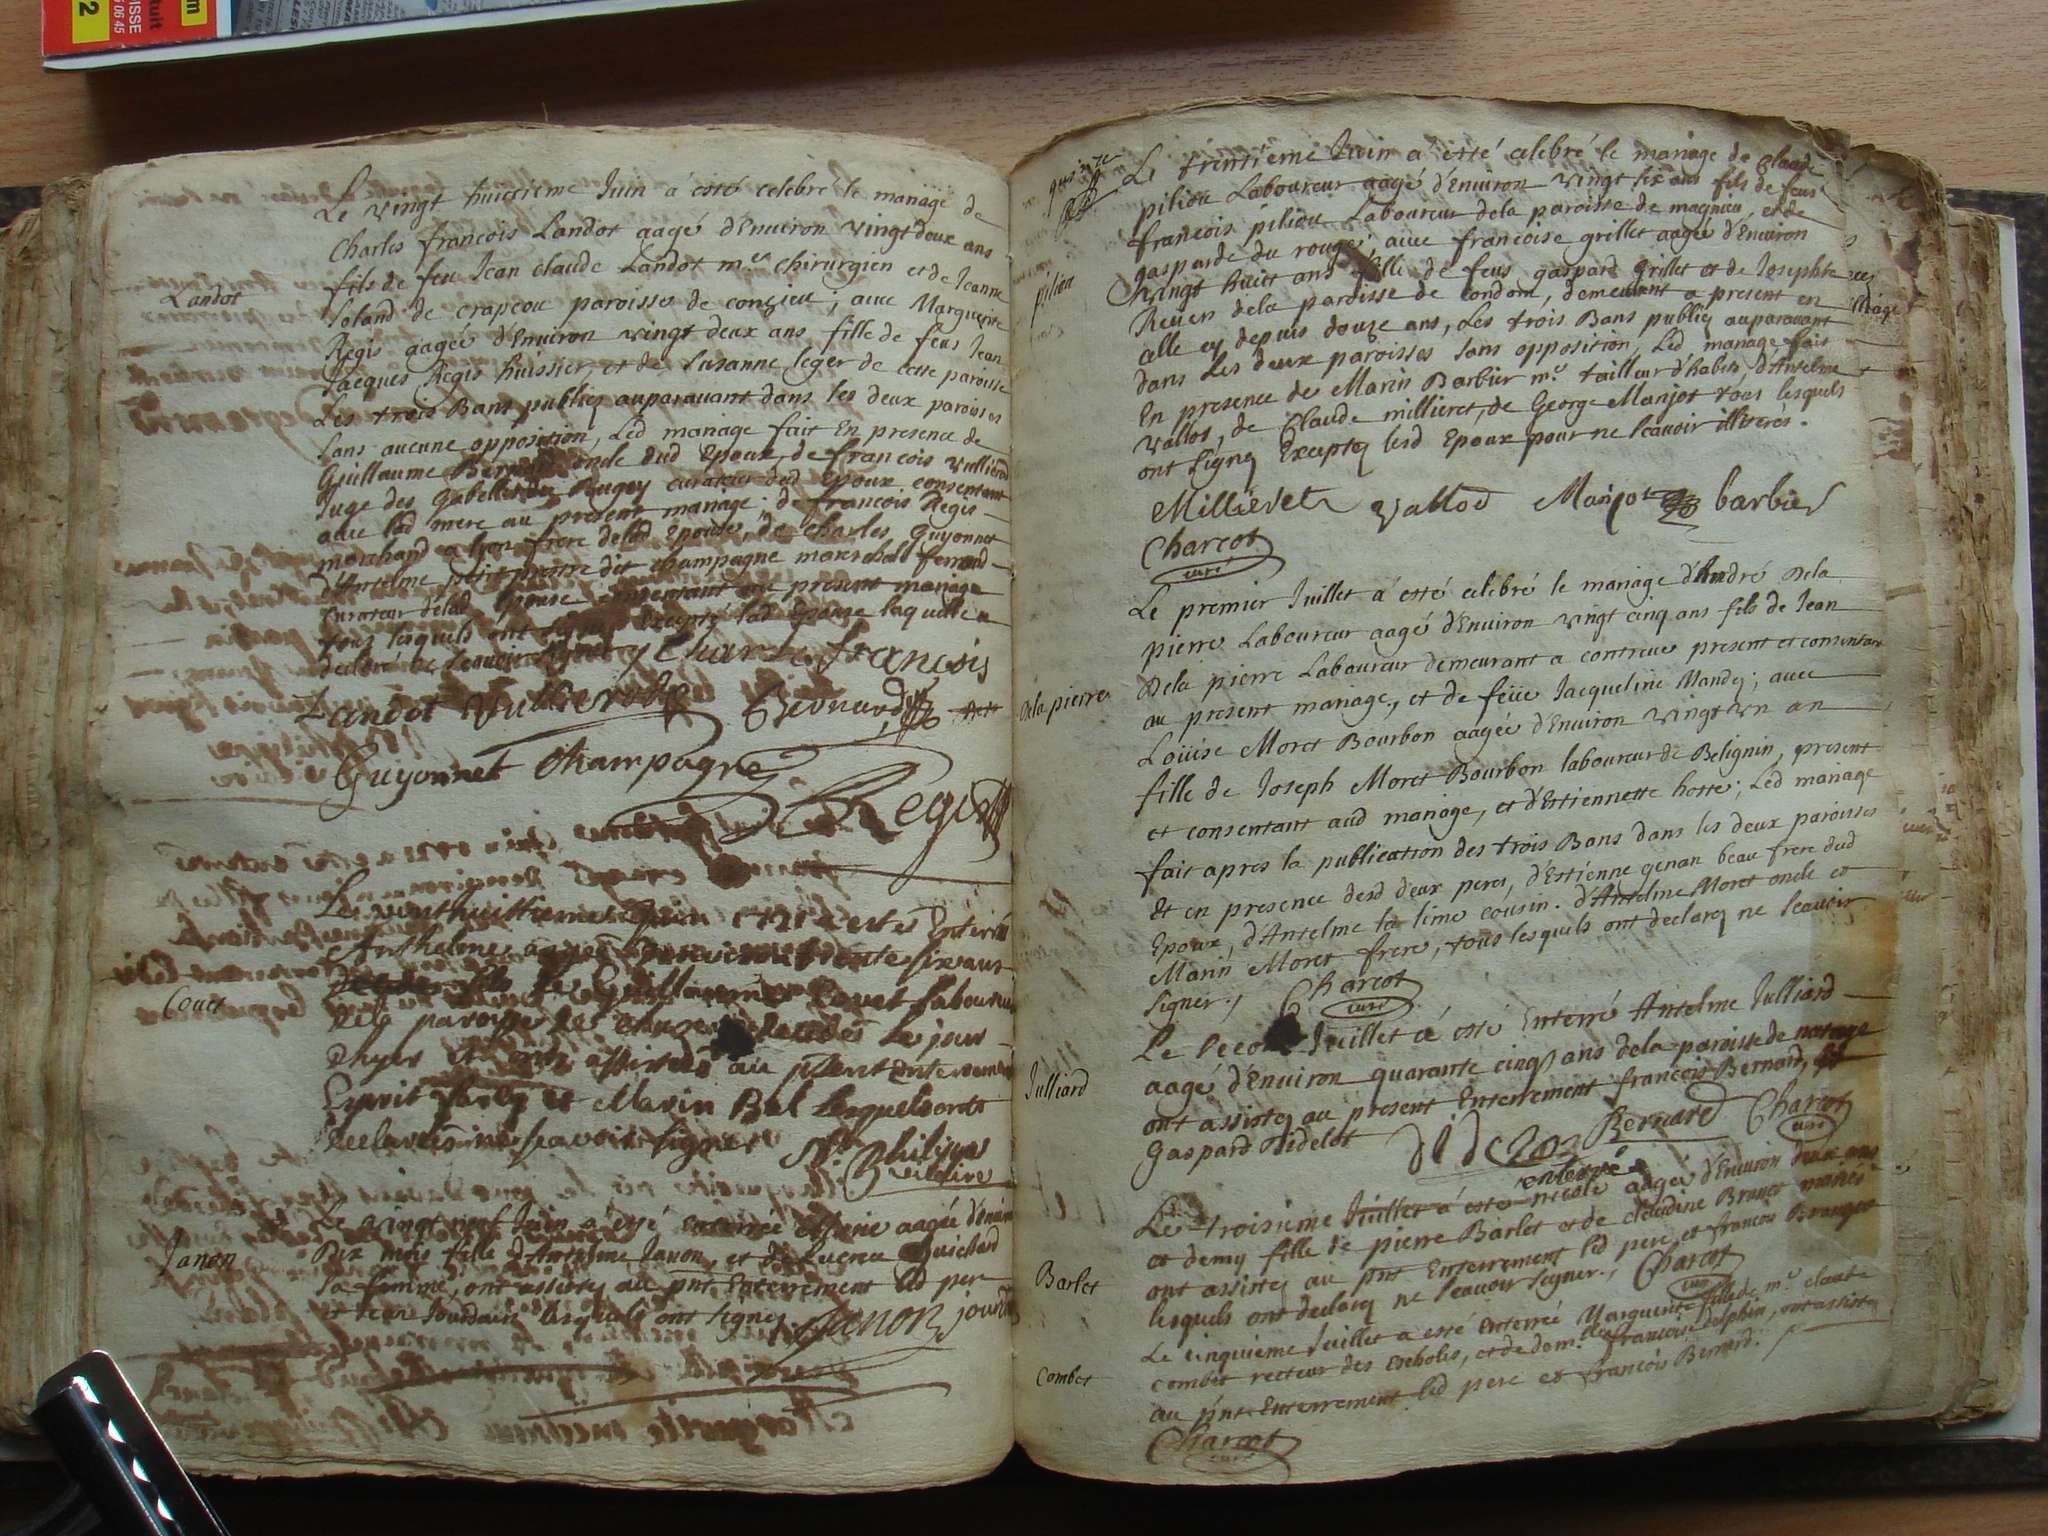 Le vingt huictieme Juin a esté celebré le mariage de
Charles françois Landot aagé d'Environ vingt deux ans
fils de feu Jean claude Landot m.re chirurgien et de Jeanne
Landot
Soland de crapeou paroisse de conzieu; avec Marguerite
Regis aagée d'Environ vingt deux ans fille de feus Jean
Jacques Regis huissier, et de Susanne leger de cette paroisse
Les trois Bans publiez auparavant dans les deux paroisses
sans aucune opposition, Led mariage fait En presence de
Guillaume Bernard oncle dud Epoux, de françois
Juge des Gabelles du Bugey curateur dud Epoux consentant
avec lad mere au present mariage, de françois Regis
marchand a lyon frere de lad Epouse, de Charles Guyonnet
d'Antelme dit champagne mareschal ferrand
curateur de lad Epouse consentant au present mariage
tous lesquels ont signé Excepté lad Epouse laquelle a
declaré ne scavoir signer Charle françois
Landot Bernard
Guyonnet Champagne
Regis
Le vinthuittieme Juin 1721 a estés Enteré
Anthelme aagé trente six ans
Couet
fils de Guillaume Couet laboureur
dela paroisse de le jour
dhyer et ont assistés au pnt enterement
Esprit et Marin Bal lesquels ont
declarés ne scavoir signer
Philippe
vicaire
Le vingt neuf Juin a esté enterrée aagée d'environ
Janon
Dix mois fille d'Antelme Janon, et de Lucrece Guichard
sa femme, ont assistez au pnt Enterrement led pere
et Jean Jourdain lesquels ont signez Janon jourdain
Le trentieme Juin a esté celebré le mariage de Claude
piliou Laboureur aagé d'Environ vingt six ans fils de feus
françois piliou Laboureur dela paroisse de magnieu, et de
gasparde du rouge; avec françoise grillet aagée d'Environ
piliou
vingt huict ans fille de feus gaspard Grillet et de Josephte
Reuen dela paroisse de condom, demeurant a present en
celle cy depuis douze ans, Les trois Bans publiez auparavant
dans Les deux paroisses sans opposition, Led mariage fait
En presence de Marin Barbier m.e tailleur d'habits, d'Antelme
vallot, de Claude millieret, de George Manjot tous lesquels
ont signez Exceptez lesd Epoux pour ne scavoir illiterés.
Millieret vallod Manjot barbier
Charcot
curé
Le premier Juillet a esté celebré le mariage d'André Dela
pierre Laboureur aagé d'Environ vingt cinq ans fils de Jean
Dela pierre Laboureur demeurant a contreve present et consentant
Dela pierre
au present mariage, et de feüe Jacqueline Mandez; avec
Loüise Moret Bourbon aagée d'Environ vingt vn an
fille de Joseph Moret Bourbon laboureur de Belignin, present
et consentant aud mariage, et d'Estiennette hoste; Led mariage
fait apres la publication des trois Bans dans les deux paroisses
Et en presence desd deux peres, d'Estienne genan beau frere dud
Epoux, d'Antelme la lime cousin. d'Antelme Moret oncle et
Marin Moret frere, tous lesquels ont declarez ne scavoir
signer./ Charcot
curé
Le second Juillet a esté Enterré Antelme Julliard
aagé d'Environ quarante cinq ans dela paroisse de
Julliard
ont assistez au present Enterrement françois Bernard, et
Gaspard Didelot Bernard Charcot
curé
enterré
Le troisieme Juillet a esté nicole aagée d'Environ deux ans
et demy fille de pierre Barlet et de claudine Brunet mariés
Barlet
ont assistez au pnt Enterrement led pere et francois
lesquels ont declarez ne scavoir signer./ Charcot
curé
Le cinquieme Juillet a esté Enterrée Marguerite fille de m.e claude
Combet
combet recteur des Escholes, et de dem.lle françoise delphin, ont assistez
au pnt Enterrement led pere et françois Bernard. /
Charcot
curé